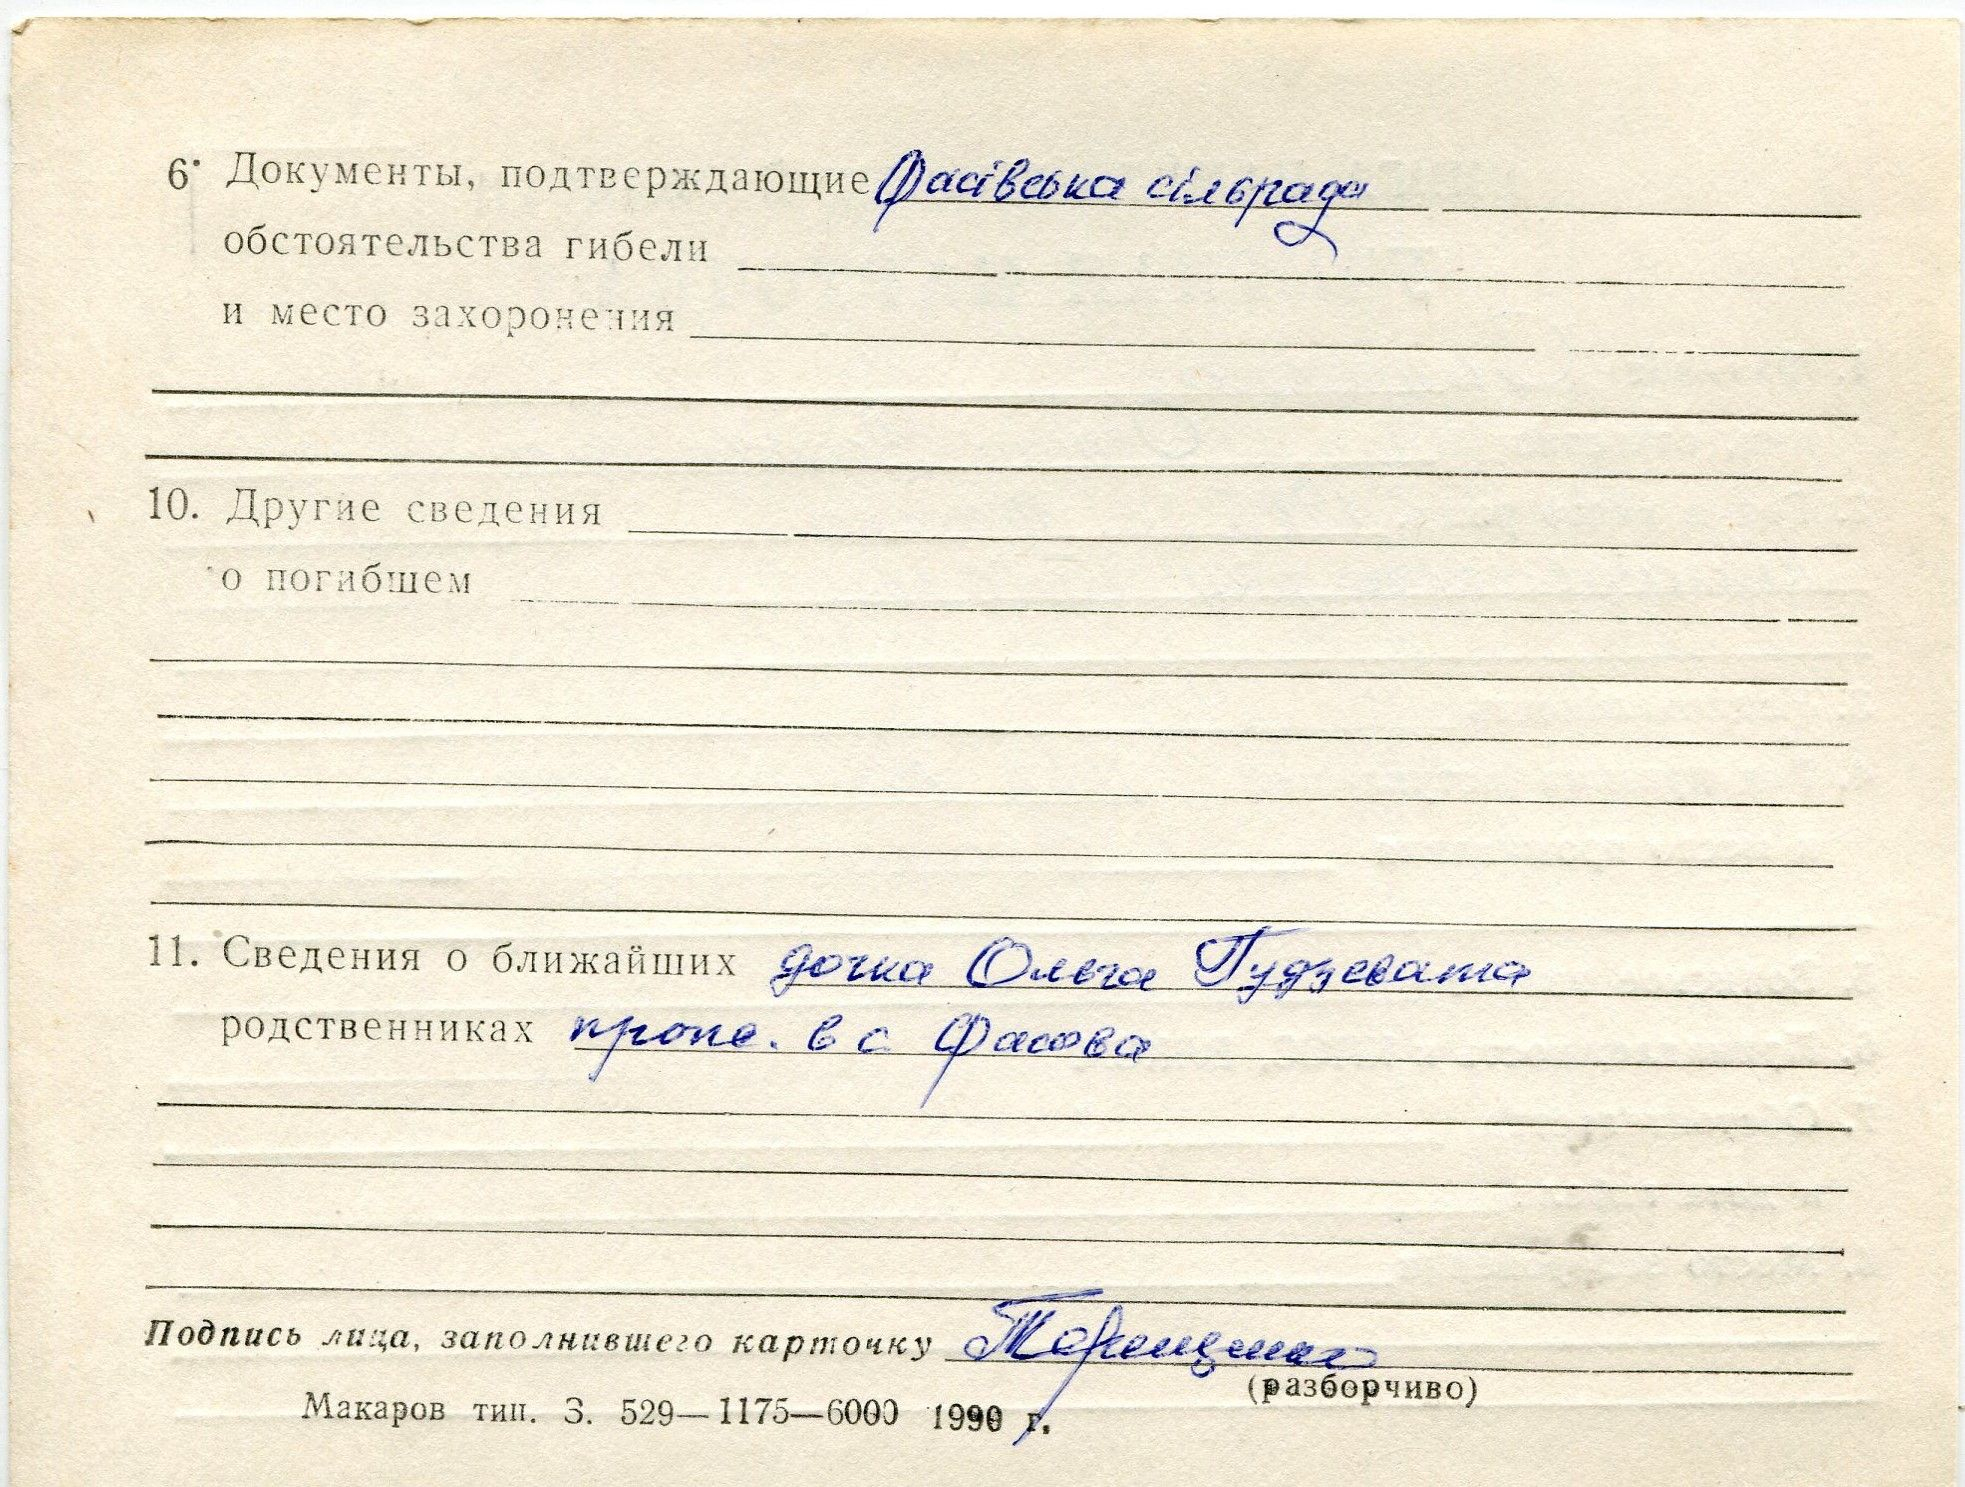 6. Документы, подтверждающие Фасівська сільрада
обстоятельства гибели
и место захоронения
10. Другие сведения
о погибшем
11. Сведения о ближайших дочка Ольга Гудзевата
родственниках прож. в с Фасова
Подпись лица, заполнившего карточку
(разборчиво)
Макаров тип. З. 529—1175—6000 1990 г.